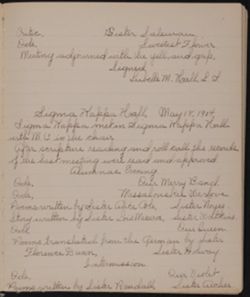 Critic, Sister
Ode, Sweetest Flower
Meeting adjourned with the yell, and gap,
Signed,
Isabelle M. Hall, S.S.
Sigma Kappa Hall, May 14, 1904
Sigma Kappa met in Sigma Kappa Hall
with W.C. in the chair
After scripture reading and roll call the records
of the last meeting were read and approved
Alumnae Evening
Ode, Our Merry Band
Ode,
Poems written by Sister Alice Cole, Sister Noyes
Story written by Sister Sister
Ode Our Queen
Poems translated from the German by Sister
Florence Dunn, Sister
Intermission
Ode, Our Violet
Poems written by Sister Randall Sister Archer